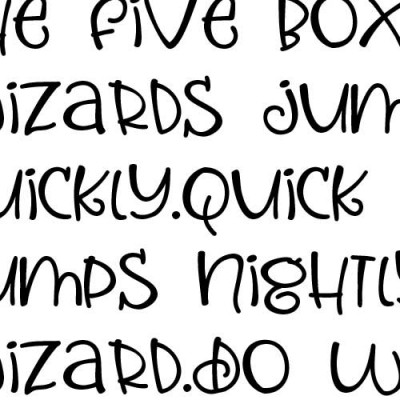 he five box
izards jum
uickly.Quick
umps nightly
izard.Do w